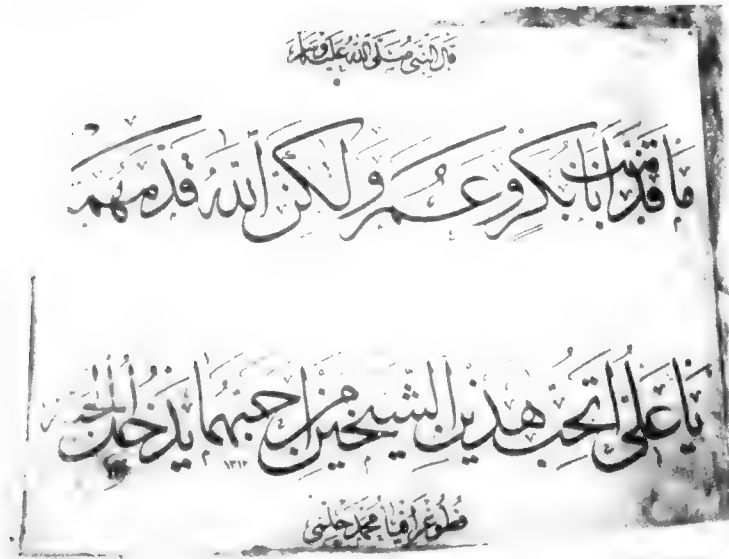 قال النبي صلى الله عليه وسلم
ما قدمت أبا بكر وعمر ولكن الله قدمهم
يا علي اتحب هذين الشيخين من احبهما يدخل الجنة
١٣١٢
فطوغرافيا محمد حلمي